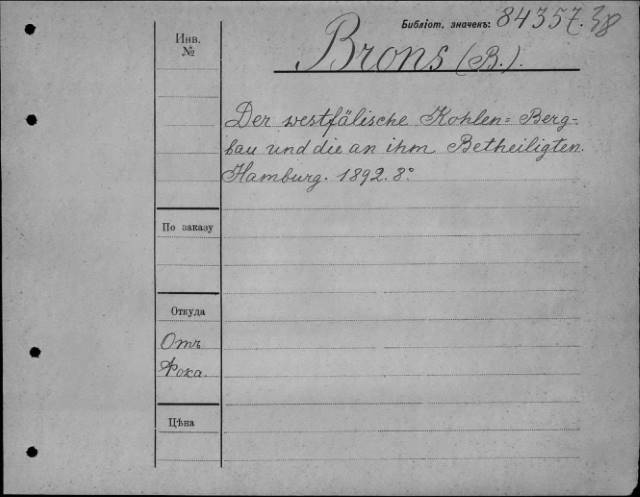 Библіот. значекъ: 84357.38
Инв.
№
Brons (B.).
Der westfälische Kohlen= Berg=
bau und die an ihm Betheiligten.
Hamburg. 1892. 8°
По заказу
Откуда
Отъ
Фока.
Цѣна